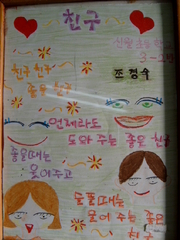 친구
3-2반
조경수
친구 친구
좋은 친구
언제라도
도와 주는 좋은 친구
좋을때는
웃어주고
슬플때는
웃어 주는 좋은
친구